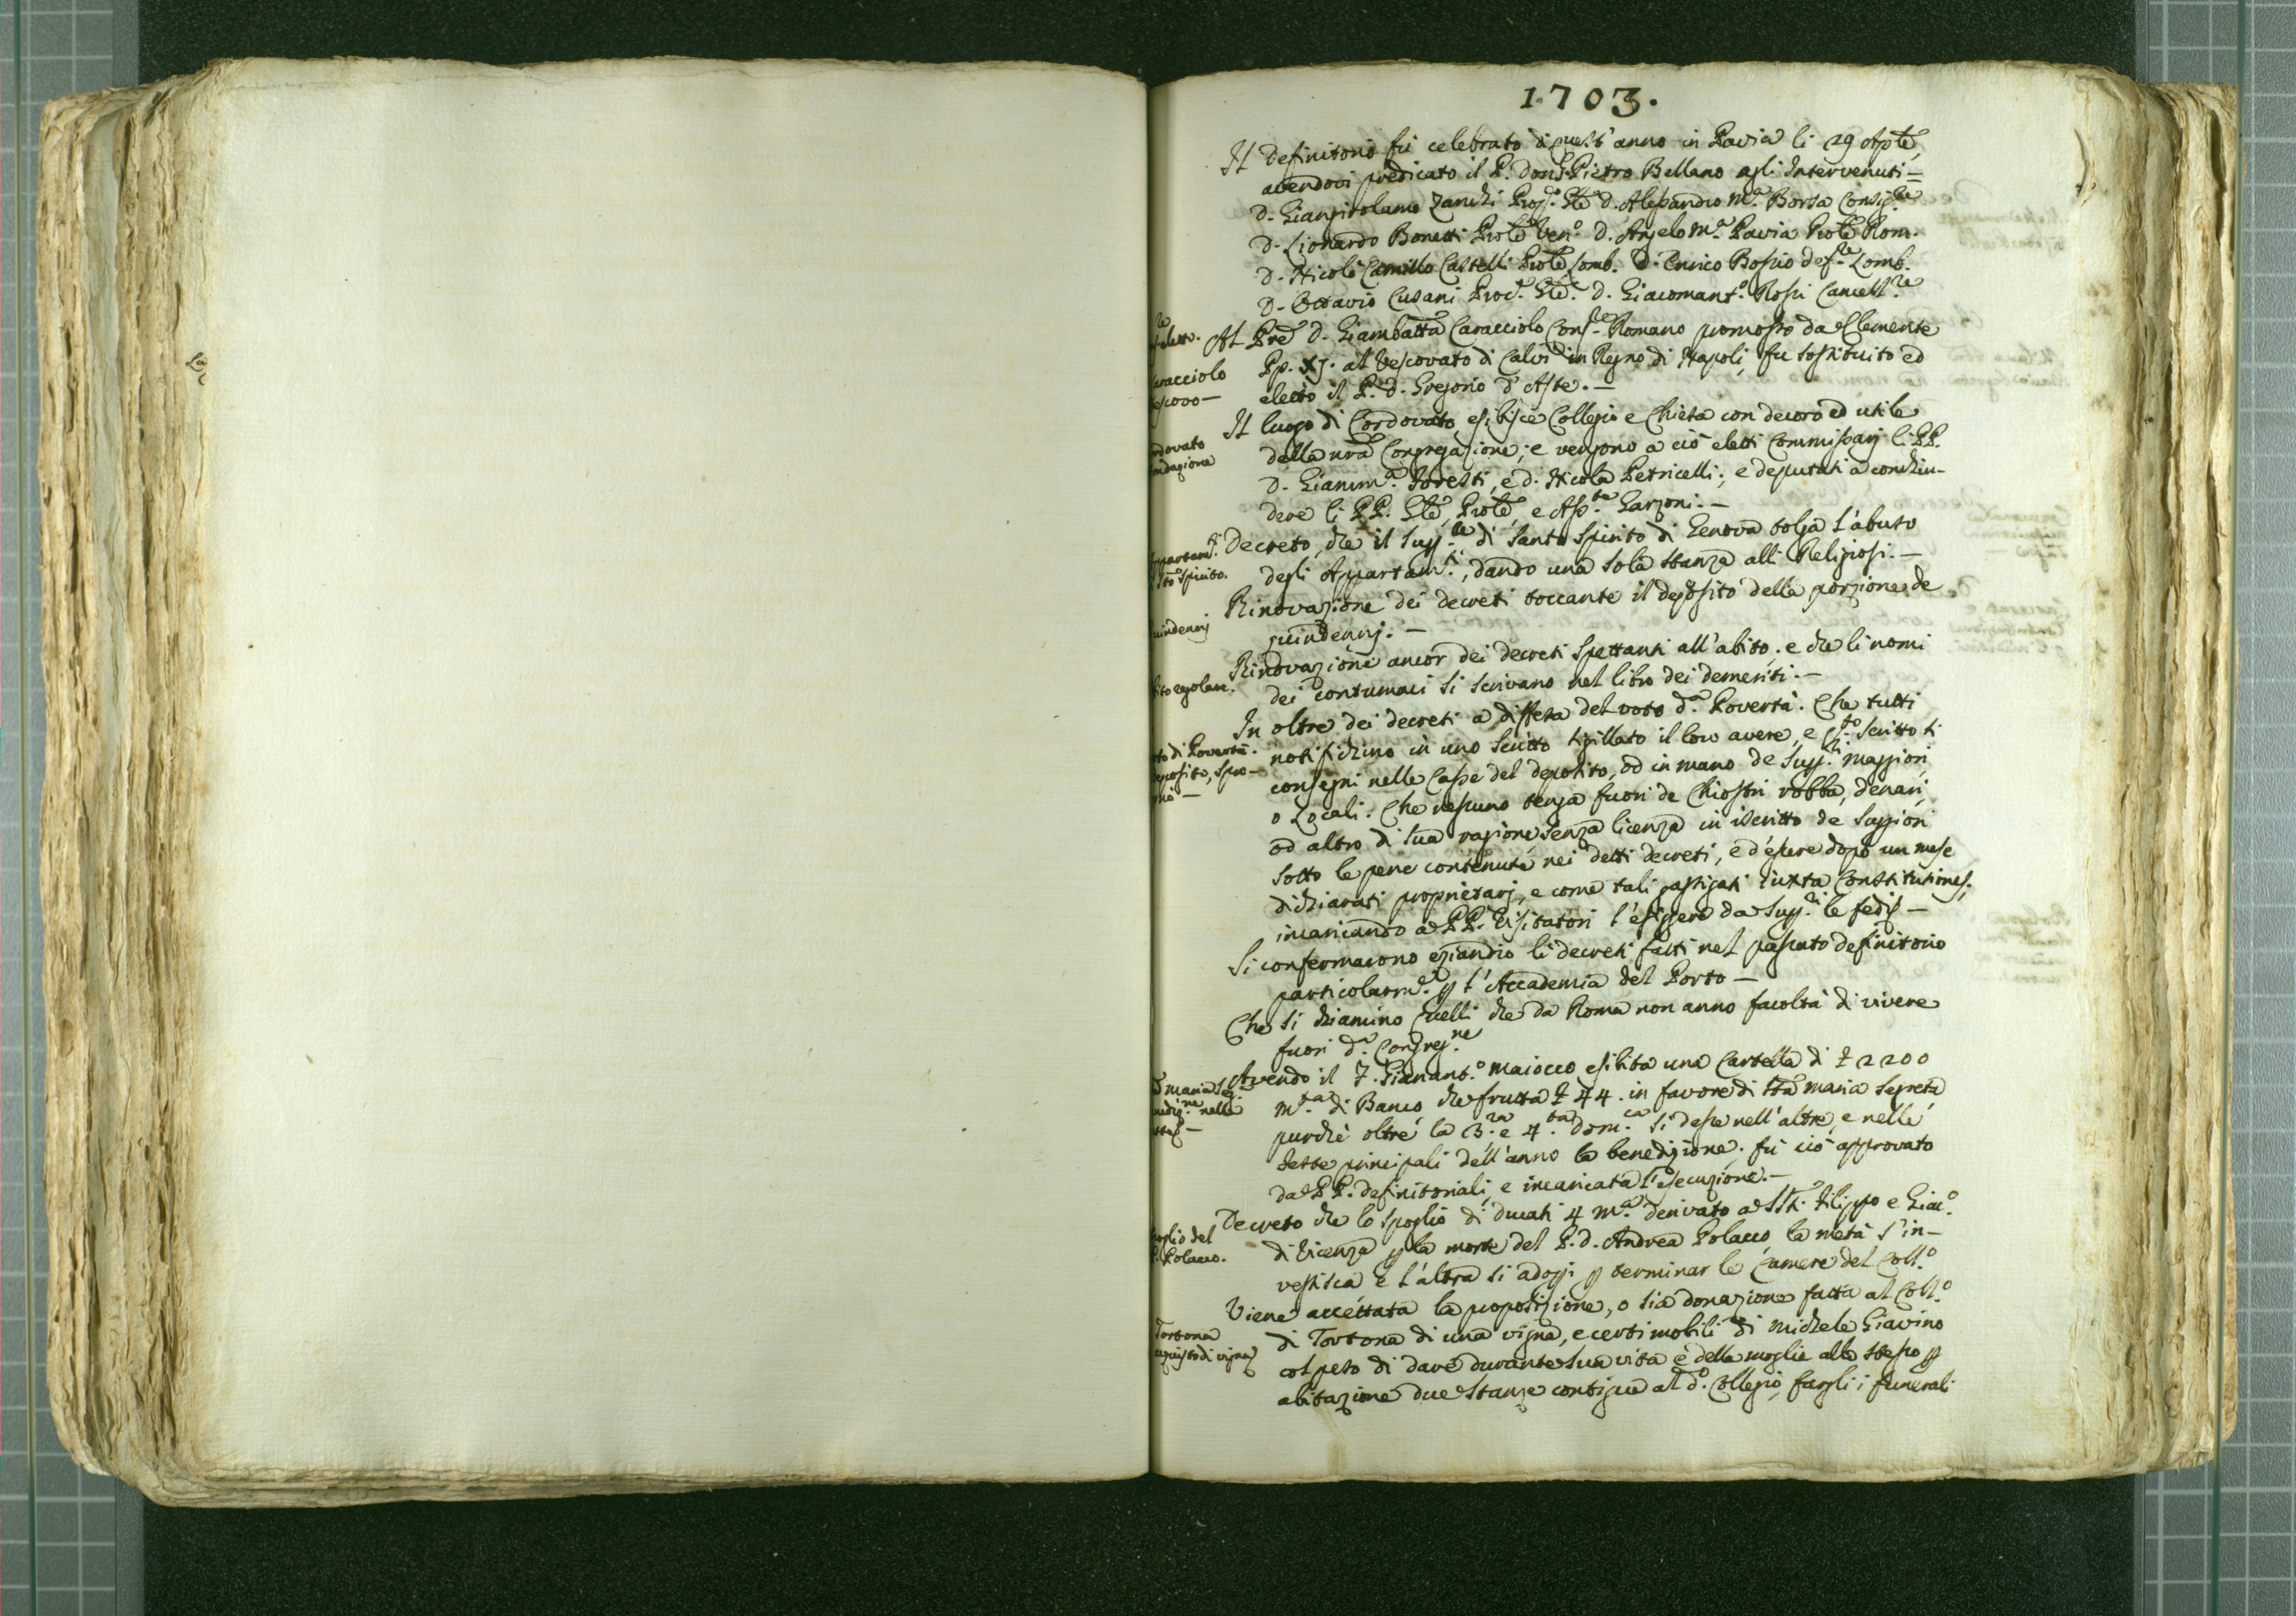 1703.
Il Definitorio fù celebrato di quest'anno in Pavia li 29 Aple,
avendovi predicato il P. Don Pietro Bellano agli Intervenuti =
D. Giangirolamo Zanchi D. Alessandro M.a Borsa Consig.re
D. Lionardo Bonetti Prole Ven.o D. Angelo M.a Pavia Prole Rom.
D. Nicolò Camillo Castelli Prole Lomb. D. Enrico Bossio def.re Lomb.
D. Ottavio Cusani Proc.e Gle. D. Giacomant.o Rossi Cancell.re
Al Pre D. Giambatta Caracciolo Cons.re Romano promosso da Clemente
Pp. XI. al Vescovato di Calvi in Regno di Napoli, fu sostituito ed
eletto il P. D. Gregorio d'Aste. —
Il luogo di Cordovato esibisce Collegio e Chiesa con decoro ed utile
della nra Congregazione; e vengono a ciò eletti Commissarj li PP.
D. Gianm.a Foresti, e D. Nicola Petricelli; e deputati a conchiu-
dere li PP. Gle, Prole, e Ass.te Garzoni. —
Decreto, che il Sup.re di Santo Spirito di Genova tolga l'abuso
degli Appartam.ti, dando una sola stanza alli Religiosi. —
Rinovazione dei decreti toccante il deposito della porzione de
quindenj. —
Rinovazione ancor dei decreti spettanti all'abito; e che li nomi
dei contumaci si scrivano nel libro dei demeriti. —
In oltre dei decreti a diffesa del voto d.a Povertà. Che tutti
notifichino in uno scritto sigillato il loro avere, e q.sto scritto si
consegni nelle Casse del deposito, od in mano de Sup.ri maggiori,
o Locali. Che nessuno tenga fuori de Chiostri robba, denari,
od altro di sua ragione senza licenza in iscritto de Suppiori
sotto le pene contenute nei detti decreti, e d'essere dopo un mese
dichiarati proprietarj, e come tali gastigati iuxta Constitutiones;
incaricando a PP. Visitatori l'esiggere da Sup.ri le fedi —
Si confermarono eziandio li decreti fatti nel passato definitorio
particolarm.e p l'Accademia del Porto —
Che si chiamino quelli che da Roma non anno facoltà di vivere
fuori d.a Congreg.ne
Avendo il F. Gianant.o Maiocco esibita una Cartella di £ 2200
m.ta di Banco che frutta £ 44. in favore di Sta Maria Segreta
purchè oltre la 3.za e 4.ta dom.ca si desse nell'altre, e nelle
feste principali dell'anno la benedizione; fù ciò approvato
da PP. definitoriali, e incaricata l'esecuzione. —
Decreto che lo spoglio di ducati 4 m.a derivato a SSti Filippo e Giac.o
di Vicenza p la morte del P. D. Andrea Polacco, la metà s'in-
vestisca e l'altra si adopri p terminar le Camere del Coll.o
Viene accettata la proposizione, o sia donazione fatta al Coll.o
di Tortona di una vigna, e certi mobili di Michele Giavino
col peso di dare durante sua vita e della moglie allo stesso p
abitazione due stanze contigue al d.o Collegio, fargli i funerali
elett.
Caracciolo
Vescovo —
Cordovato
fondazione
Appartam.ti
Sto Spirito.
quindenj
abito regolare.
voto di Povertà.
deposito,
S Maria Seg.
bened.ne nelle
feste —
spoglio del
P. Polacco.
Tortona
acquisto di vigna